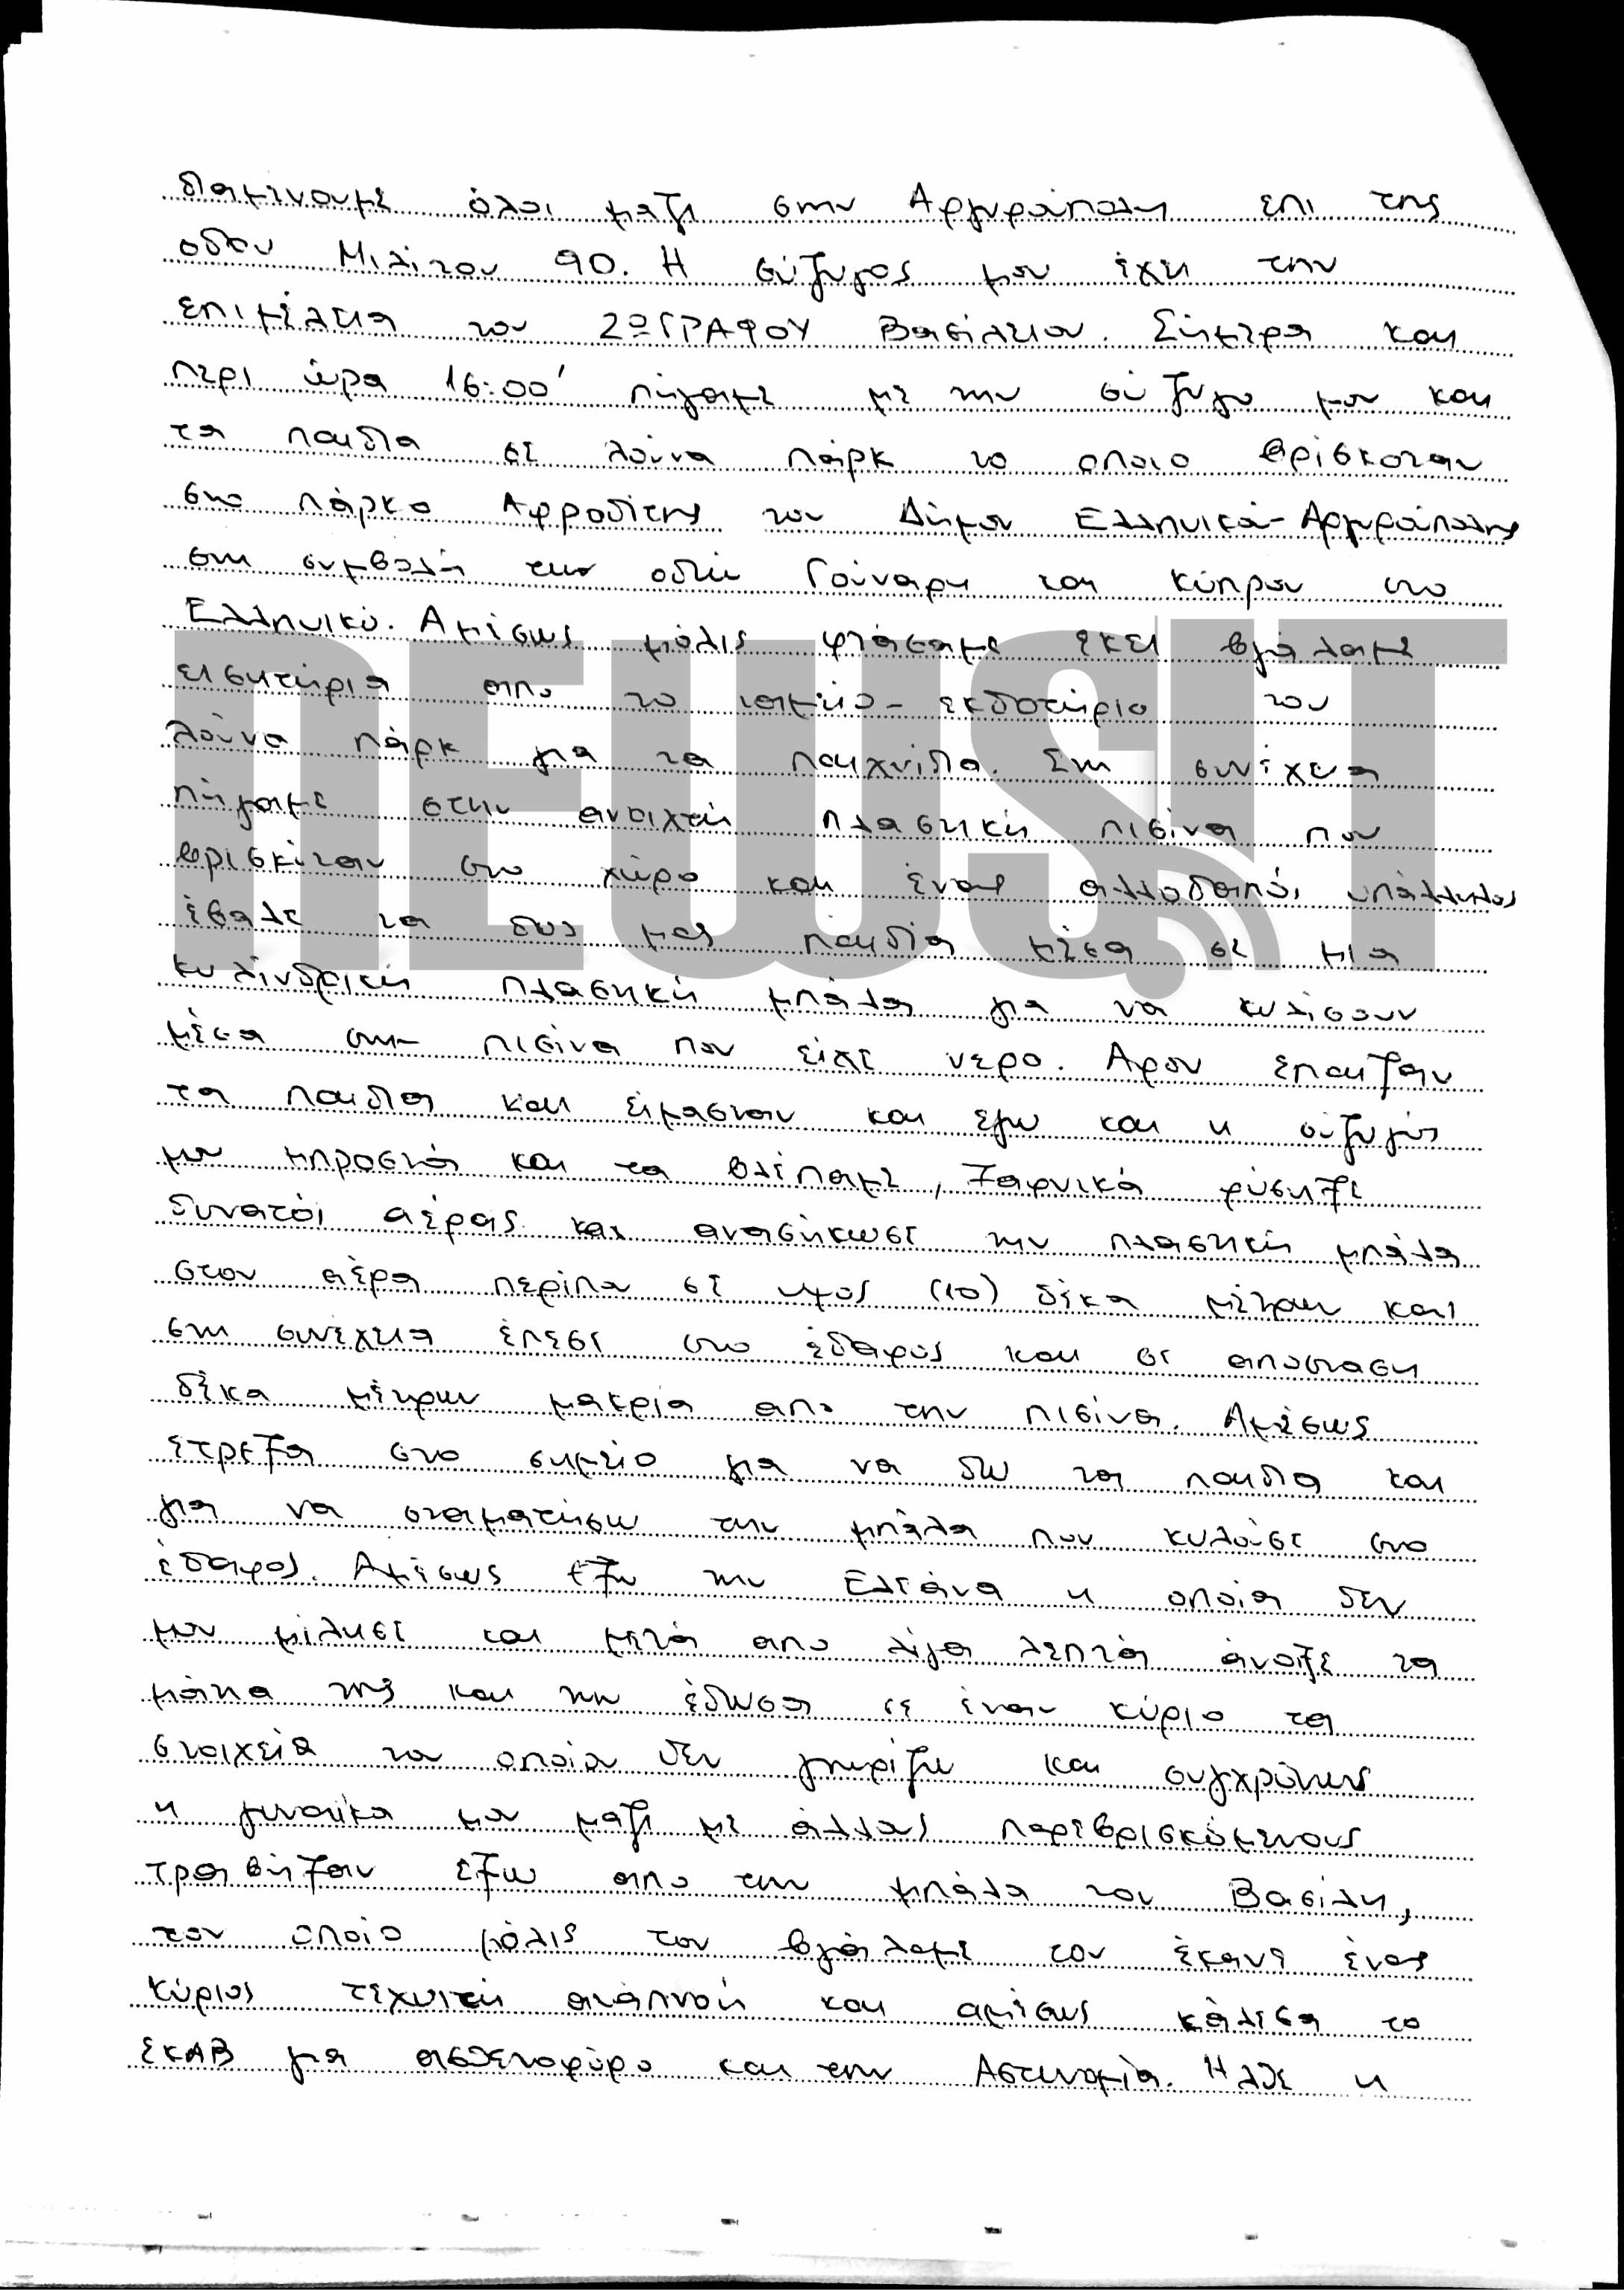 διαμένουμε όλοι μαζί στην Αργυρούπολη επι της
οδου Μιλήτου 90. Η σύζυγος μου έχει την
επιμέλεια του ΖΩΓΡΑΦΟΥ Βασίλειου. Σήμερα και
περι ώρα 16:00' πήγαμε με την σύζυγο μου και
τα παιδια σε λούνα πάρκ το οποιο βρίσκοταν
στο πάρκο Αφροδίτης του Δήμου Ελληνικό-Αργυρόπολης
στη συμβολή των οδών Γούναρη και Κύπρου στο
Ελληνικό. Αμέσως μόλις φτάσαμε εκει βγάλαμε
εισητήρια απο το ταμείο-εκδοτήριο του
λούνα πάρκ για τα παιχνίδια. Στη συνέχεια
πήγαμε στην ανοιχτή πλαστική πισίνα που
βρισκόταν στο χώρο και ένας αλλοδαπός υπάλληλος
έβαλε τα δυο μας παιδιά μέσα σε μια
κυλίνδρική πλαστική μπάλα για να κυλίσουν
μέσα στην πισίνα που είχε νερο. Αφου έπαιζαν
τα παιδια και είμασταν και εγω και η σύζυγός
μου μπροστά και τα βλέπαμε, ξαφνικά φύσηξε
δυνατός αέρας και ανασήκωσε την πλαστική μπάλα
στον αέρα περίπου σε υψος (10) δέκα μέτρων και
στη συνέχεια έπεσε στο έδαφος και σε αποσταση
δέκα μέτρων μακρια απο την πισίνα. Αμέσως
έτρεξα στο σημείο για να δω τα παιδια και
για να σταματήσω την μπάλα που κυλούσε στο
έδαφος. Αμέσως έξω την Ελεάνα η οποία δεν
μου μίλησε και μετά απο λίγα λεπτά άνοιξε τα
μάτια της και την έδωσα σε έναν κύριο τα
στοιχεία του οποίου δεν γνωρίζω και συγχρόνως
η γυναίκα μου μαζι με άλλους παρεβρισκόμενους
τραβήξαν έξω απο την μπάλα τον Βασίλη,
τον οποίο μόλις τον βγάλαμε του έκανε ένας
κύριος τεχνιτή αναπνοή και αμέσως κάλεσα το
ΕΚΑΒ για ασθενοφόρο και την Αστυνομία. Ηλθε η
NEWSIT